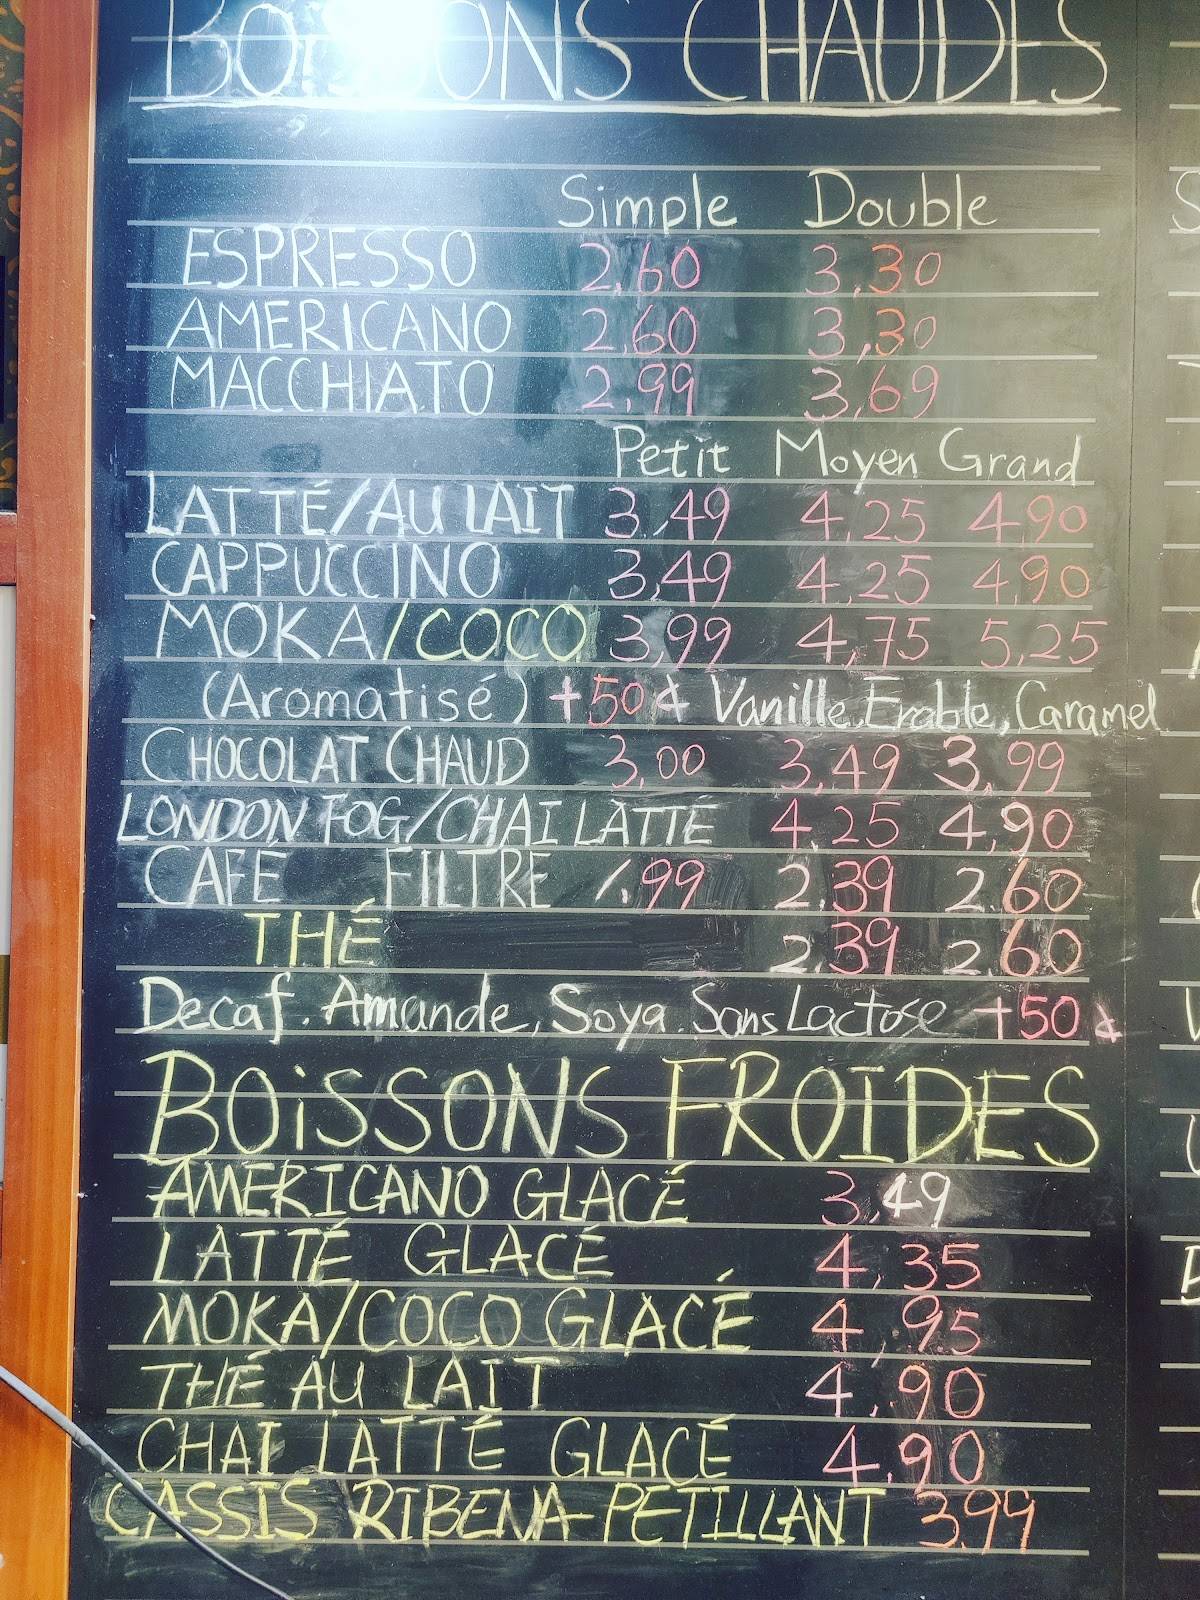 BOISSONS CHAUDES
Simple Double
ESPRESSO 2,60 3,30
AMERICANO 2,60 3,30
MACCHIATO 2,99 3,69
Petit Moyen Grand
LATTÉ/AU LAIT 3,49 4,25 4,90
CAPPUCCINO 3,49 4,25 4,90
MOKA/COCO 3,99 4,75 5,25
(Aromatisé) +50¢ Vanille, Erable, Caramel
CHOCOLAT CHAUD 3,00 3,49 3,99
LONDON FOG/CHAI LATTÉ 4,25 4,90
CAFÉ FILTRE 1.99 2.39 2.60
THÉ 2.39 2.60
Decaf. Amande, Soya. Sans Lactose +50¢
BOiSSONS FROIDES
AMERICANO GLACÉ 3,49
LATTÉ GLACÉ 4,35
MOKA/COCO GLACÉ 4,95
THÉ AU LAIT 4.90
CHAI LATTÉ GLACÉ 4,90
CASSIS RIBENA PETILLANT 3.99